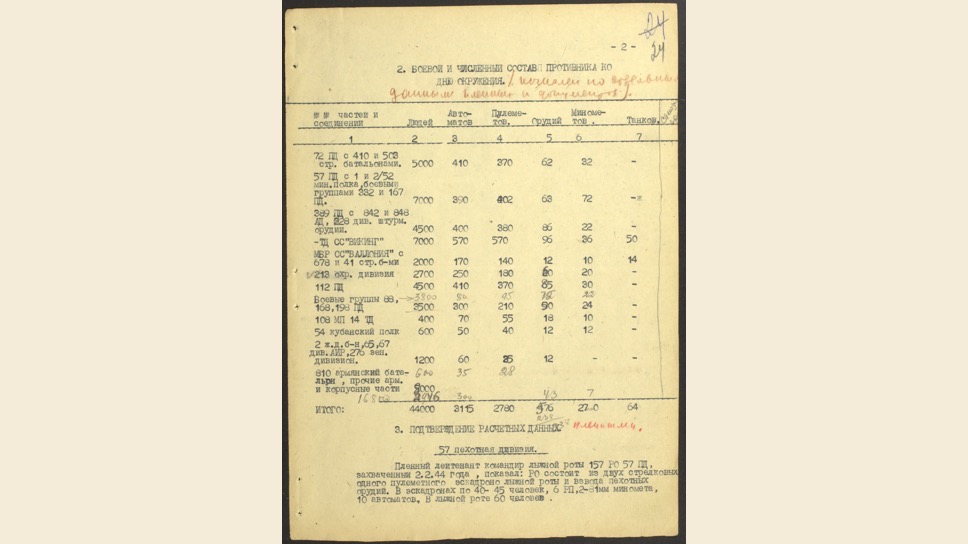 24
- 2 -
24
2. БОЕВОЙ И ЧИСЛЕННЫЙ СОСТАВ ПРОТИВНИКА КО
ДНЮ ОКРУЖЕНИЯ.
данным пленных и документов).
№№ частей и соединений Людей Авто-матов Пулеме-тов. Орудий Миноме-тов. Танков.
1 2 3 4 5 6 7
72 ПД с 410 и 503
стр. батальонами. 5000 410 370 62 32 -
57 ПД с 1 и 2/52
мин.полка,боевыми
группами 332 и 167
ПД. 7000 390 402 63 72 -
389 ПД с 842 и 848
АД, 228 див. штурм.
орудий. 4500 400 380 86 22 -
-ТД СС"ВИКИНГ" 7000 570 570 96 36 50
МБР СС"ВАЛЛОНИЯ" с
678 и 41 стр.б-ми 2000 170 140 12 10 14
213 охр. дивизия 2700 250 180 20 -
112 ПД 4500 410 370 85 30 -
Боевые группы 88,
168,198 ПД 3500 300 210 50 24 -
108 МП 14 ТД 400 70 55 18 10 -
54 кубанский полк 600 50 40 12 12 -
2 ж.д.б-н,65,67
див.АИР,276 зен.
дивизион. 1200 60 25 12 - -
810 армянский бата- 600 35 28
льон , прочие арм.
и корпусные части 43 7
ИТОГО: 44000 3115 2780 64
3. ПОДТВЕРЖДЕНИЕ РАСЧЕТНЫХ ДАННЫХ
57 пехотная дивизия.
Пленный лейтенант командир лыжной роты 157 РО 57 ПД,
захваченный 2.2.44 года , показал: РО состоит из двух стрелковых
одного пулеметного эскадроно лыжной роты и взвода пехотных
орудий. В эскадронах по 40- 45 человек, 6 РП,2-81мм миномета,
10 автоматов. В лыжной роте 60 человек .